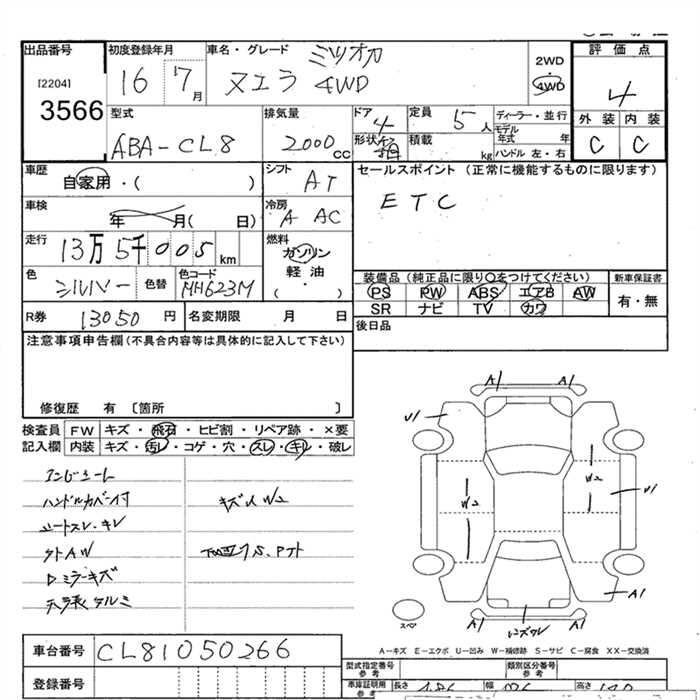 出品番号
[2204]
3566
初度登録年月
16 7月
車名・グレード
ミツオカ
ヌエラ 4WD
2WD
4WD
評価点
4
外装 内装
C C
型式
ABA-CL8
排気量
2000cc
ドア
4
形状 箱
定員
5人
積載
kg
ディーラー・並行
モデル年式 年
ハンドル 左・右
車歴
自家用・( )
シフト
AT
セールスポイント (正常に機能するものに限ります)
ETC
車検
年 月( 日)
冷房
A AC
走行
13万5千005km
燃料
ガソリン
軽油
( ・ )
色
シルバー
色替
色コード
MH623M
装備品 (純正品に限り○をつけてください)
新車保証書
PS PW ABS エアB AW
SR ナビ TV カワ
有・無
R券 13050円
名変期限 月 日
後日品
注意事項申告欄(不具合内容等は具体的に記入して下さい)
修復歴 有 [箇所 ]
検査員記入欄
FW キズ・飛石・ヒビ割・リペア跡・×要
内装 キズ・汚レ・コゲ・穴・スレ・キレ・破レ
ハンドルカバー付
シートスレ・キレ
キズ人W2
外AW
ドミラーキズ
天張タルミ
A1 A1
U1
W2 W2
U1
A1
スペア
レンズワレ
A-キズ E-エクボ U-凹み W-補修跡 S-サビ C-腐食 XX-交換済
車台番号 CL81050266
登録番号
型式指定番号
参考
類別区分番号
参考
車庫証明用
参考
長さ 幅 高さ